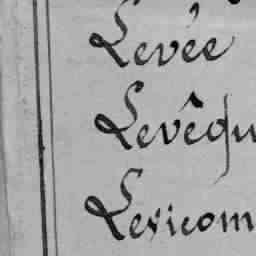 Levée
Levêqu
Levicom